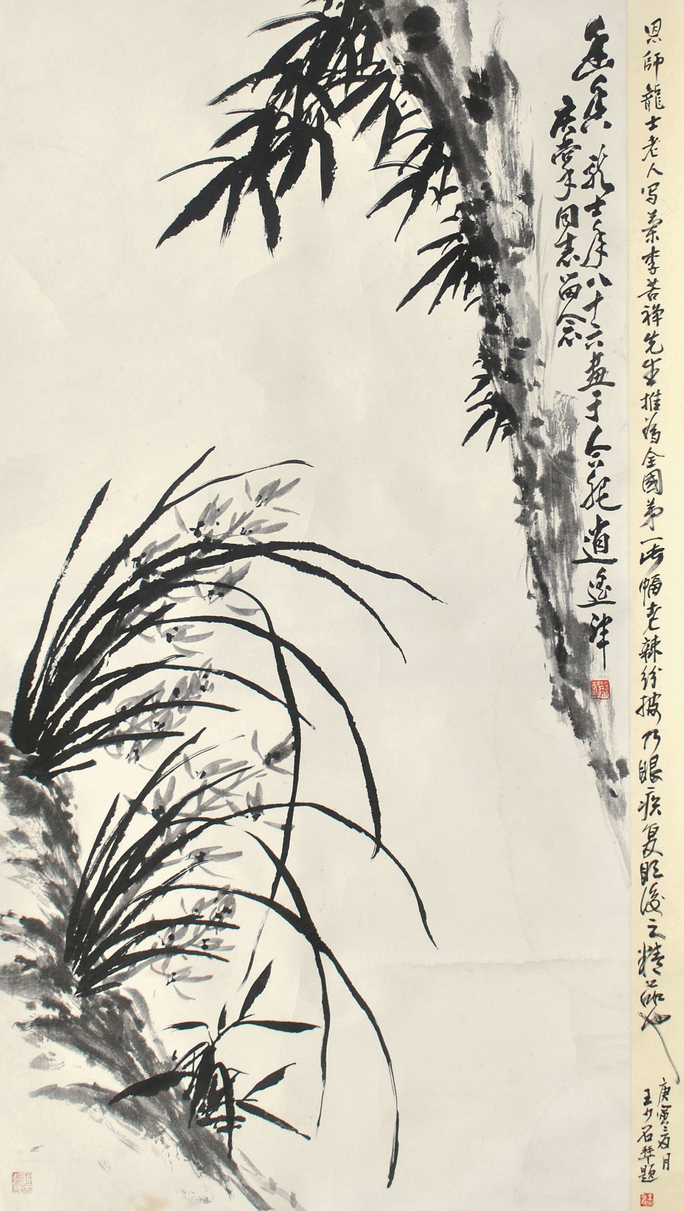 恩師龍士老人写蘭李苦禅先生推為全國第一此幅老辣紛披乃眼疾复明後之精品也
庚寅月
王少石拜題
幽香 龍士年八十六畫于合肥逍遙津
同志留念